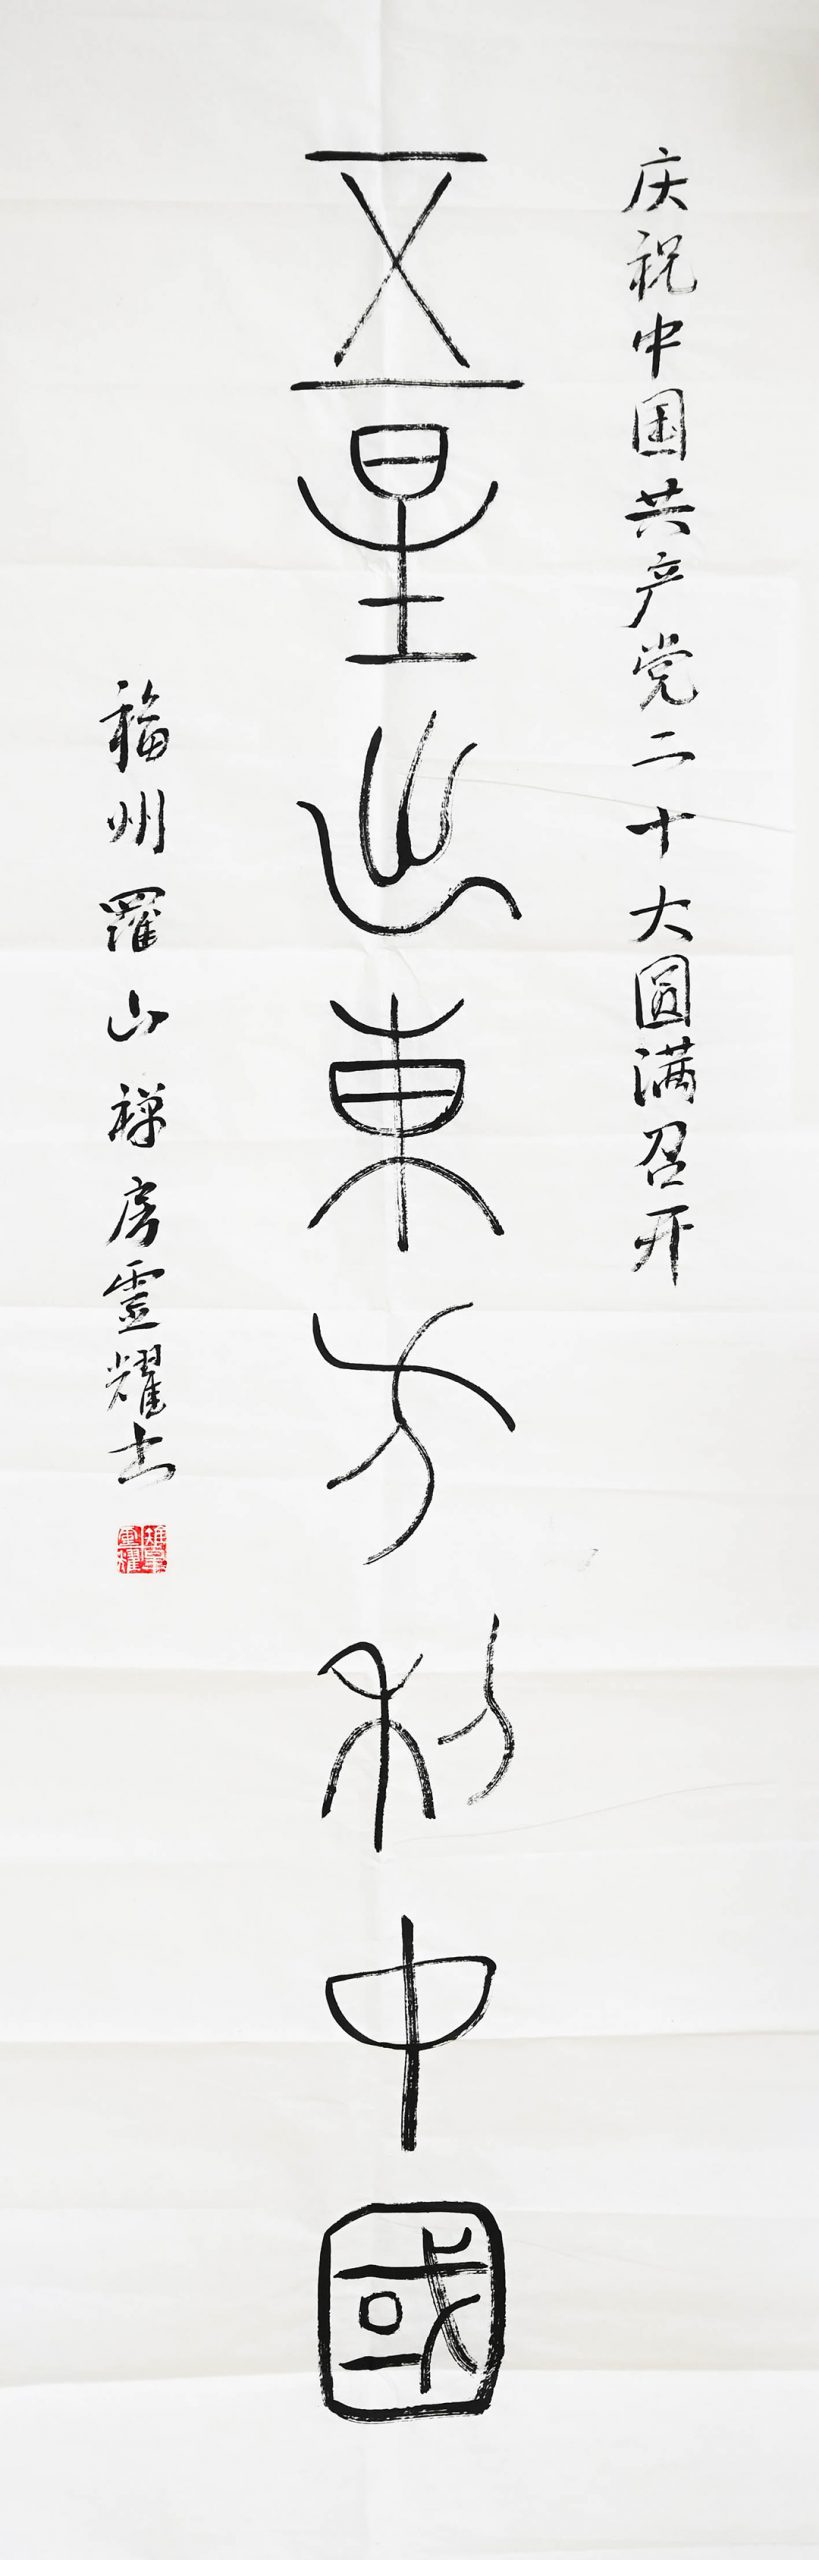 庆祝中国共产党二十大圆满召开
五星出東方利中國
福州羅山禅房靈耀书